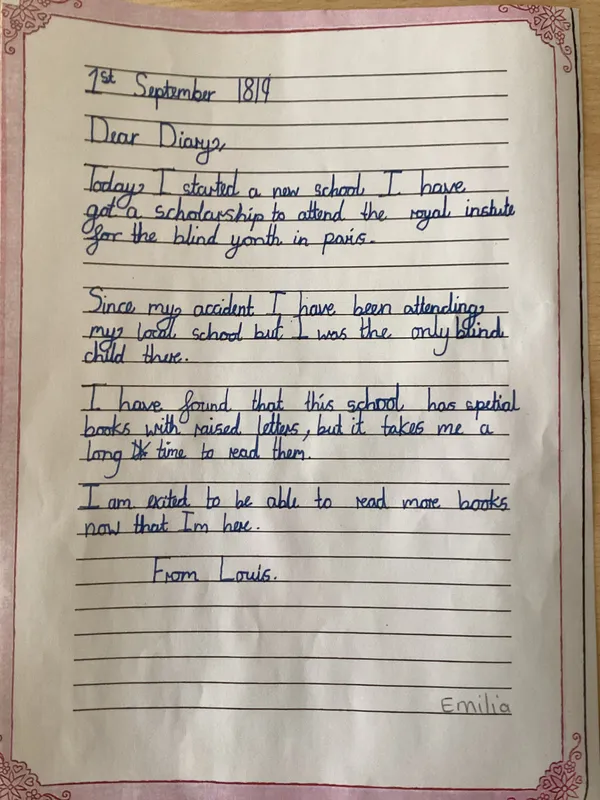 1st September 1819
Dear Diary,
Today I started a new school I have
got a scholarship to attend the royal instute
for the blind youth in paris.
Since my accident I have been attending
my local school but I was the only blind
child there.
I have found that this school has spetial
books with raised letters, but it takes me a
long time to read them.
I am exited to be able to read more books
now that Im here.
From Louis.
Emilia